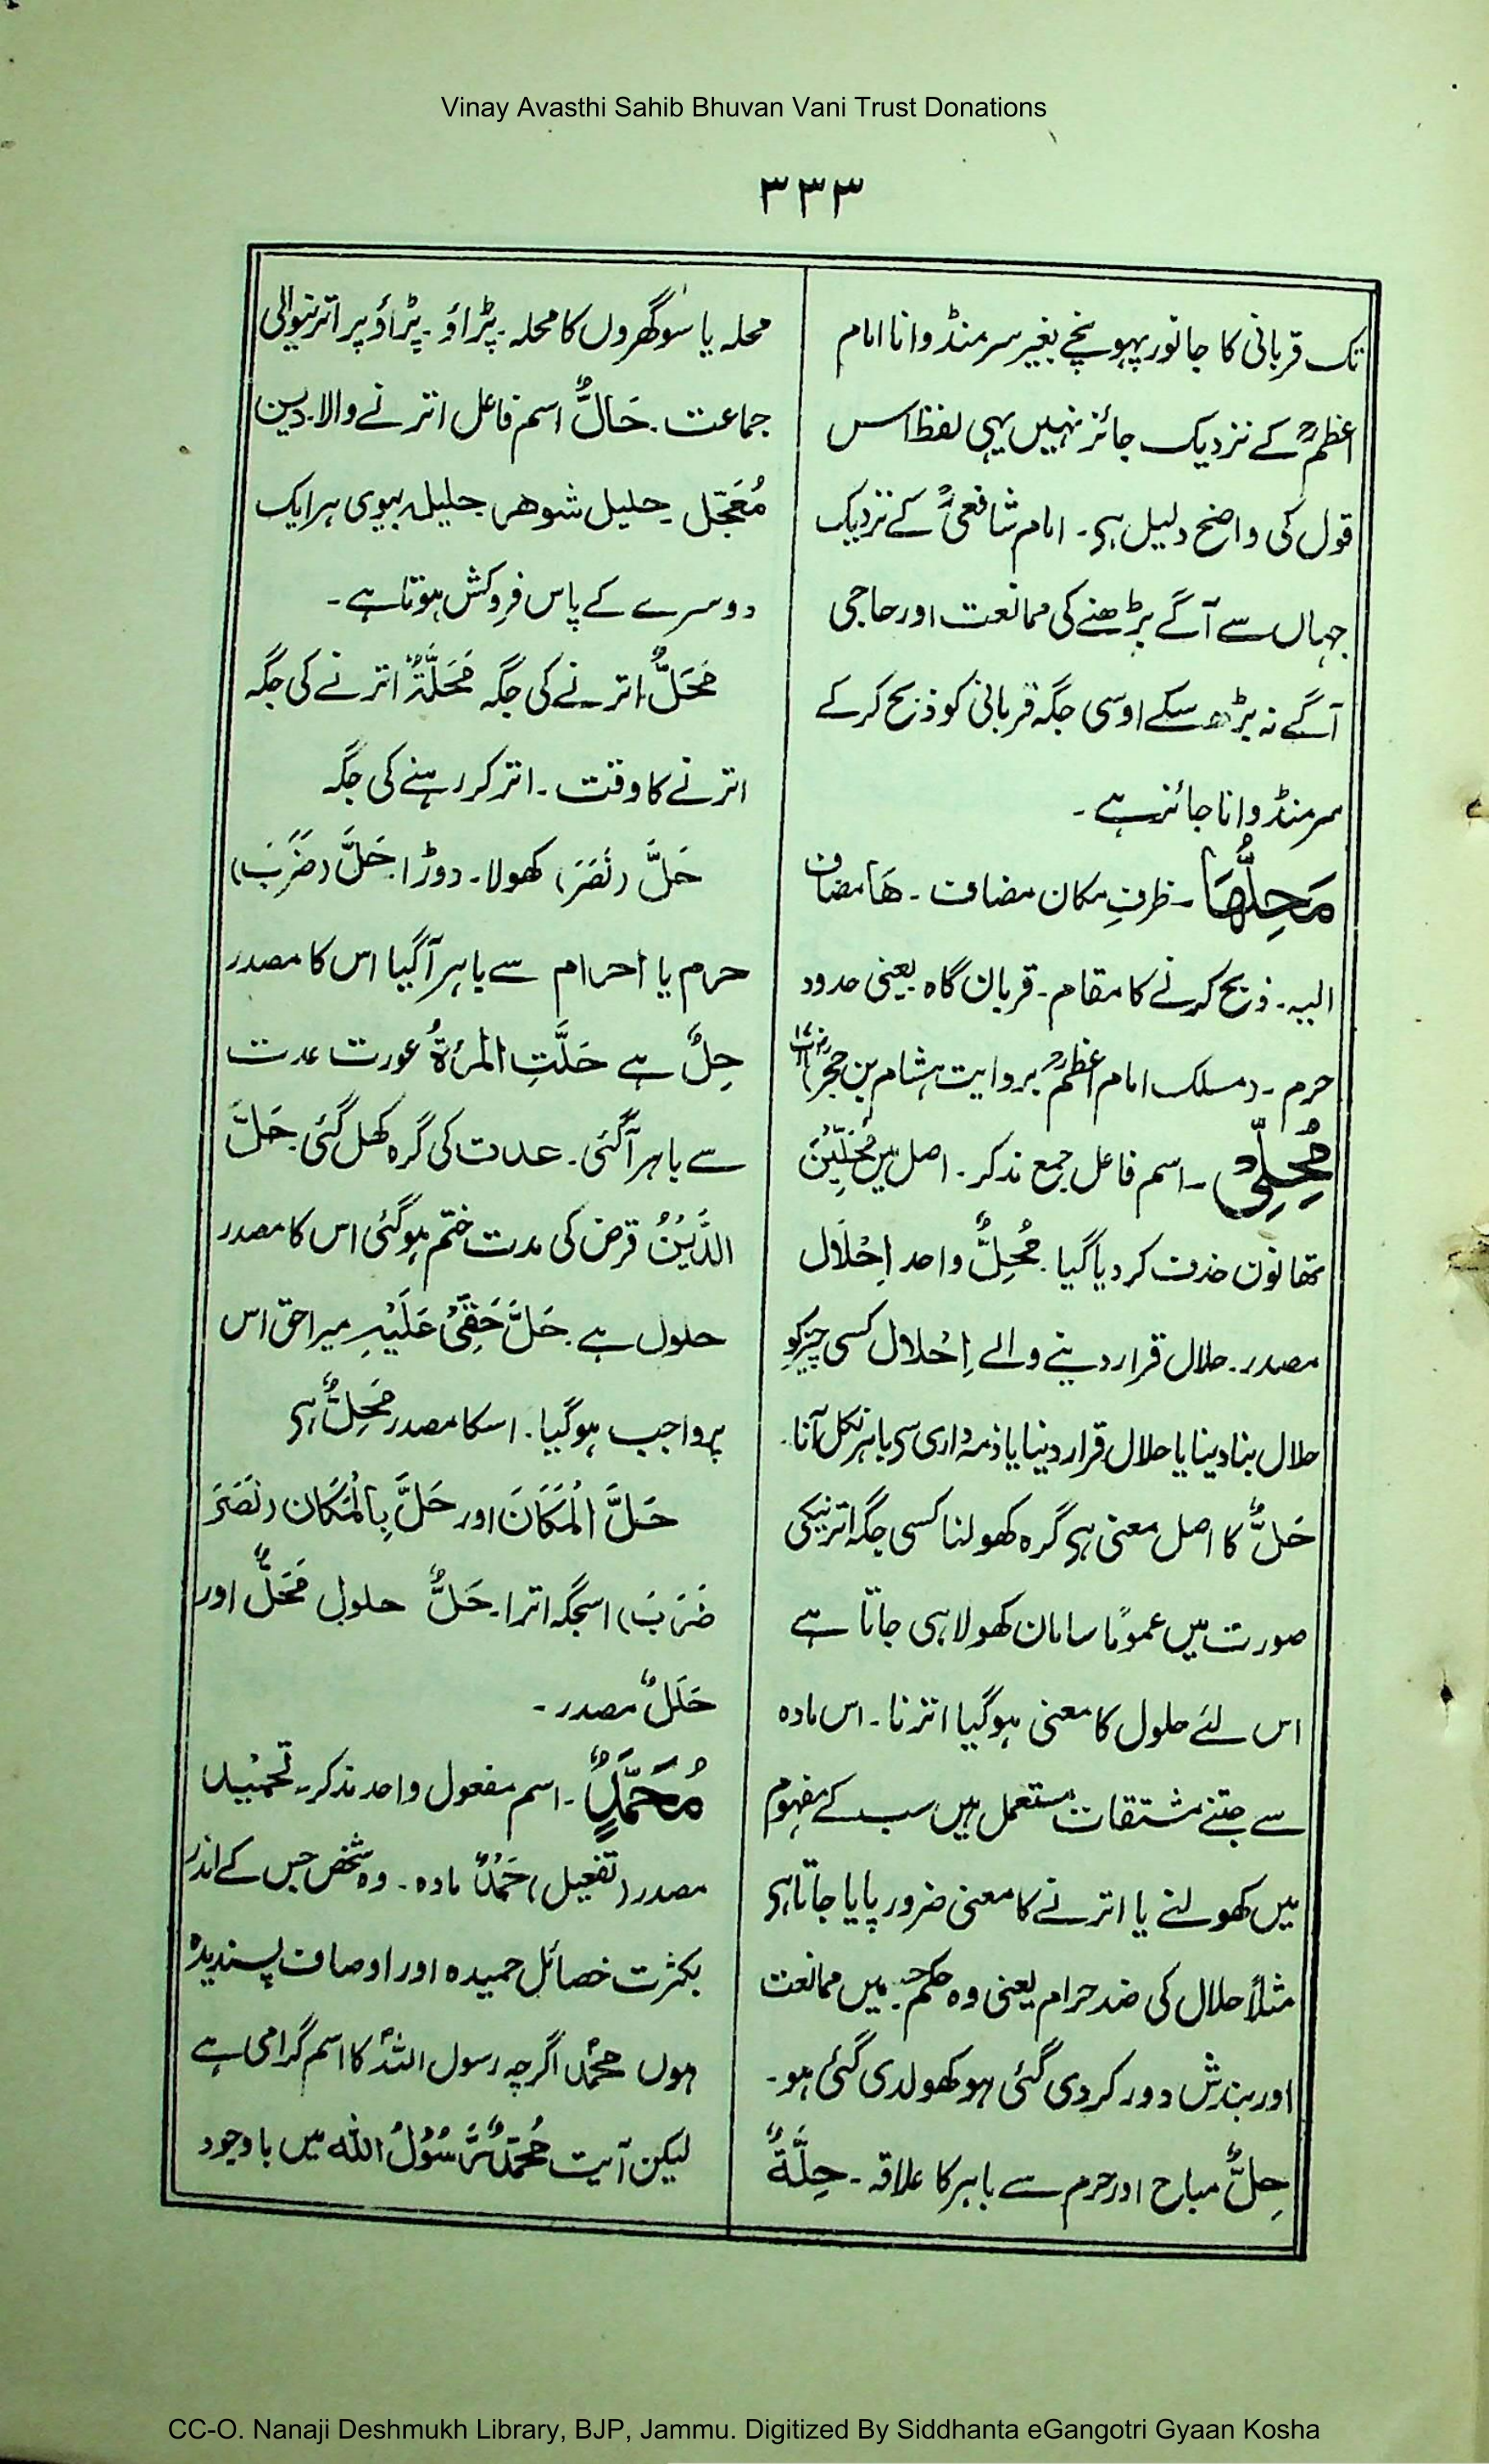 Vinay Avasthi Sahib Bhuvan Vani Trust Donations
۳۳۳
تک قربانی کا جانور پہونچے بغیر سر منڈوانا امام
اعظمؒ کے نزدیک جائز نہیں یہی لفظ اس
قول کی واضح دلیل ہی۔ امام شافعیؒ کے نزدیک
جہاں سے آگے بڑھنے کی ممانعت اور حاجی
آگے نہ بڑھ سکے اوسی جگہ قربانی کو ذبح کر کے
سر منڈوانا جائز ہے۔
مَحِلُّهَا۔ ظرفِ مکان مضاف۔ هَا مضاف
الیہ۔ ذبح کرنے کا مقام۔ قربان گاہ یعنی حدود
حرم۔ (مسلک امام اعظمؒ بروایت ہشام بن حجر)
مُحِلِّیْ۔ اسم فاعل جمع مذکر۔ اصل میں مُحِلِّیْنَ
تھا نون حذف کر دیا گیا۔ مُحِلٌّ واحد اِحْلَال
مصدر۔ حلال قرار دینے والے اِحْلال کسی چیز کو
حلال بنا دینا یا حلال قرار دینا یا ذمہ داری سی باہر نکل آنا۔
حَلٌّ کا اصل معنی ہی گرہ کھولنا کسی جگہ اترنیکی
صورت میں عموًما سامان کھولا ہی جاتا ہے
اس لئے حلول کا معنی ہو گیا اترنا۔ اس مادہ
سے جتنے مشتقات مستعمل ہیں سب کے مفہوم
میں کھولنے یا اترنے کا معنی ضرور پایا جاتا ہی
مثلاً حلال کی ضد حرام یعنی وہ حکم جس میں ممانعت
اور بندش دور کر دی گئی ہو کھولدی گئی ہو۔
حِلٌّ مباح اور حرم سے باہر کا علاقہ۔ حِلَّةٌ
محلہ یا سو گھروں کا محلہ۔ پڑاؤ۔ پڑاؤ پر اترنیوالی
جماعت۔ حَالٌّ اسم فاعل اترنے والا۔ دین
مُعَجّل۔ حلیل شوهر۔ حلیلہ بیوی ہر ایک
دوسرے کے پاس فروکش ہوتا ہے۔
مَحَلٌّ اترنے کی جگہ مَحَلَّةٌ اترنے کی جگہ
اترنے کا وقت۔ اتر کر رہنے کی جگہ
حَلَّ (نَصَرَ) کھولا۔ دوڑا۔ حَلَّ (ضَرَبَ)
حرم یا احرام سے باہر آ گیا اس کا مصدر
حِلٌّ ہے حَلَّتِ المَرْءَةُ عورت عدت
سے باہر آ گئی۔ عدت کی گرہ کھل گئی۔ حَلَّ
الدَّیْنُ قرض کی مدت ختم ہو گئی اس کا مصدر
حلول ہے۔ حَلَّ حَقِّیْ عَلَیْهِ میرا حق اس
پر واجب ہو گیا۔ اسکا مصدر مَحِلٌّ ہی
حَلَّ الْمَکَانَ اور حَلَّ بِالْمَکَان (نَصَرَ
ضَرَبَ) اسجگہ اترا۔ حَلٌّ حلول مَحَلٌّ اور
حَلَلٌ مصدر۔
مُحَمَّدٌ۔ اسم مفعول واحد مذکر۔ تَحْمِیْد
مصدر (تفعیل) حَمْدٌ مادہ۔ وہ شخص جس کے اندر
بکثرت خصائل حمیدہ اور اوصاف پسندیدہ
ہوں محمدؐ اگرچہ رسول اللہؐ کا اسم گرامی ہے
لیکن آیت مُحَمَّدٌ رَّسُوْلُ الله میں باوجود
CC-O. Nanaji Deshmukh Library, BJP, Jammu. Digitized By Siddhanta eGangotri Gyaan Kosha